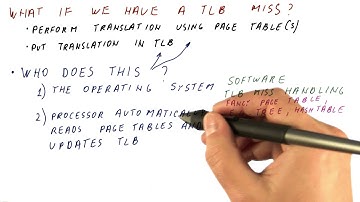 WHAT IF WE HAVE A TLB MISS?
• PERFORM TRANSLATION USING PAGE TABLE(S)
• PUT TRANSLATION IN TLB
• WHO DOES THIS?
1) THE OPERATING SYSTEM
SOFTWARE
TLB MISS HANDLING
2) PROCESSOR AUTOMATICAL
READS PAGE TABLES AND
UPDATES TLB
PAGE TABLE,
TREE, HASHTABLE